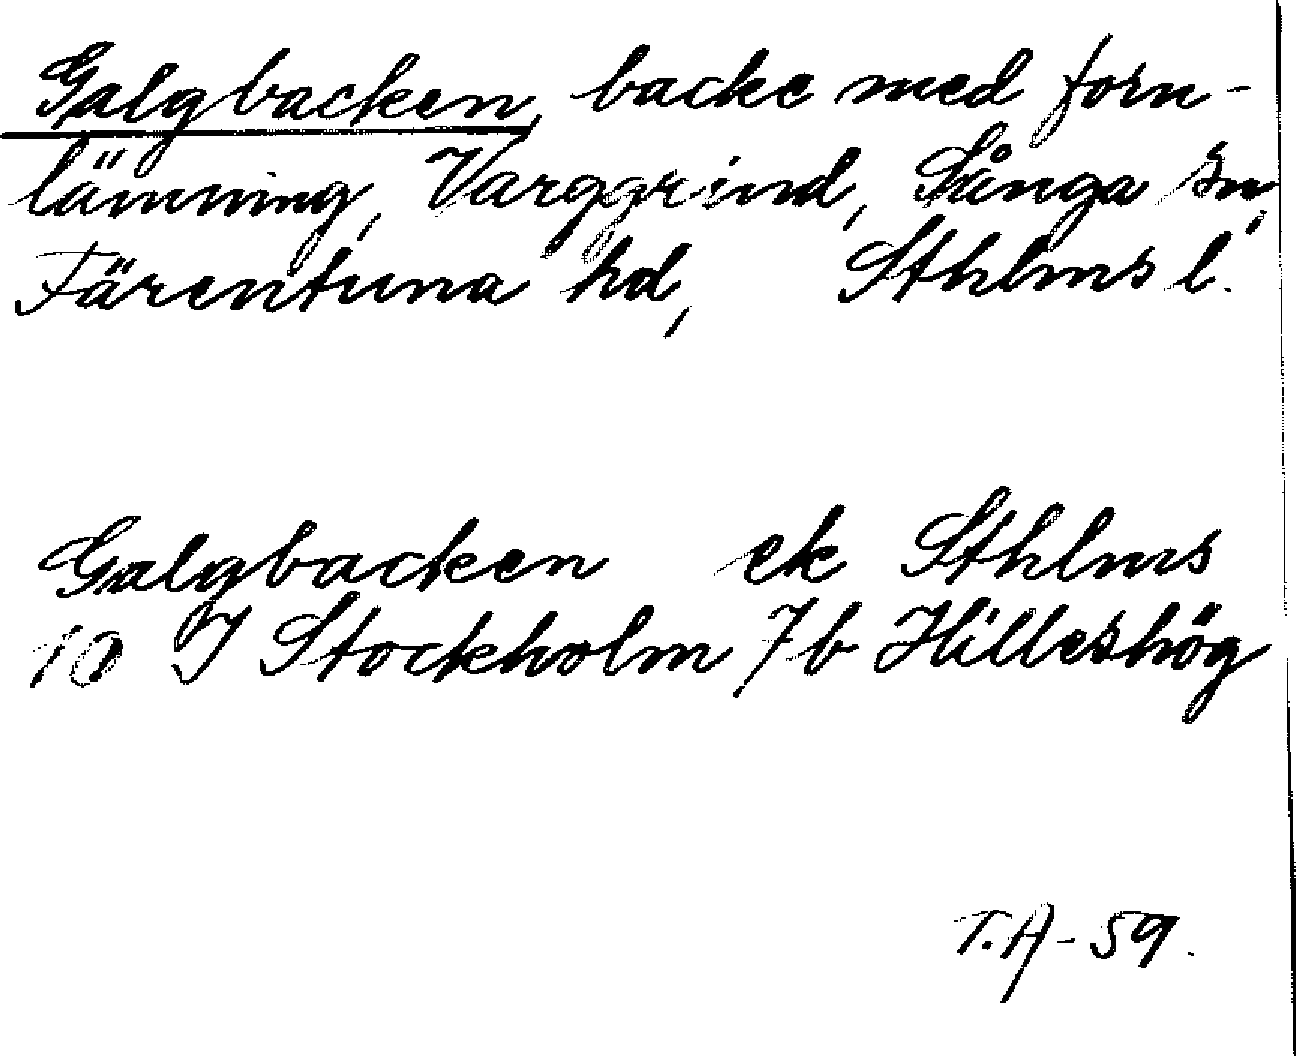 Galgbacken, backe med forn-
lämning, Varggrind, Sånga sn,
Färentuna hd, Sthlms l.
Galgbacken ek Sthlms
10 I Stockholm 7b Hilleshög
T.A-59.